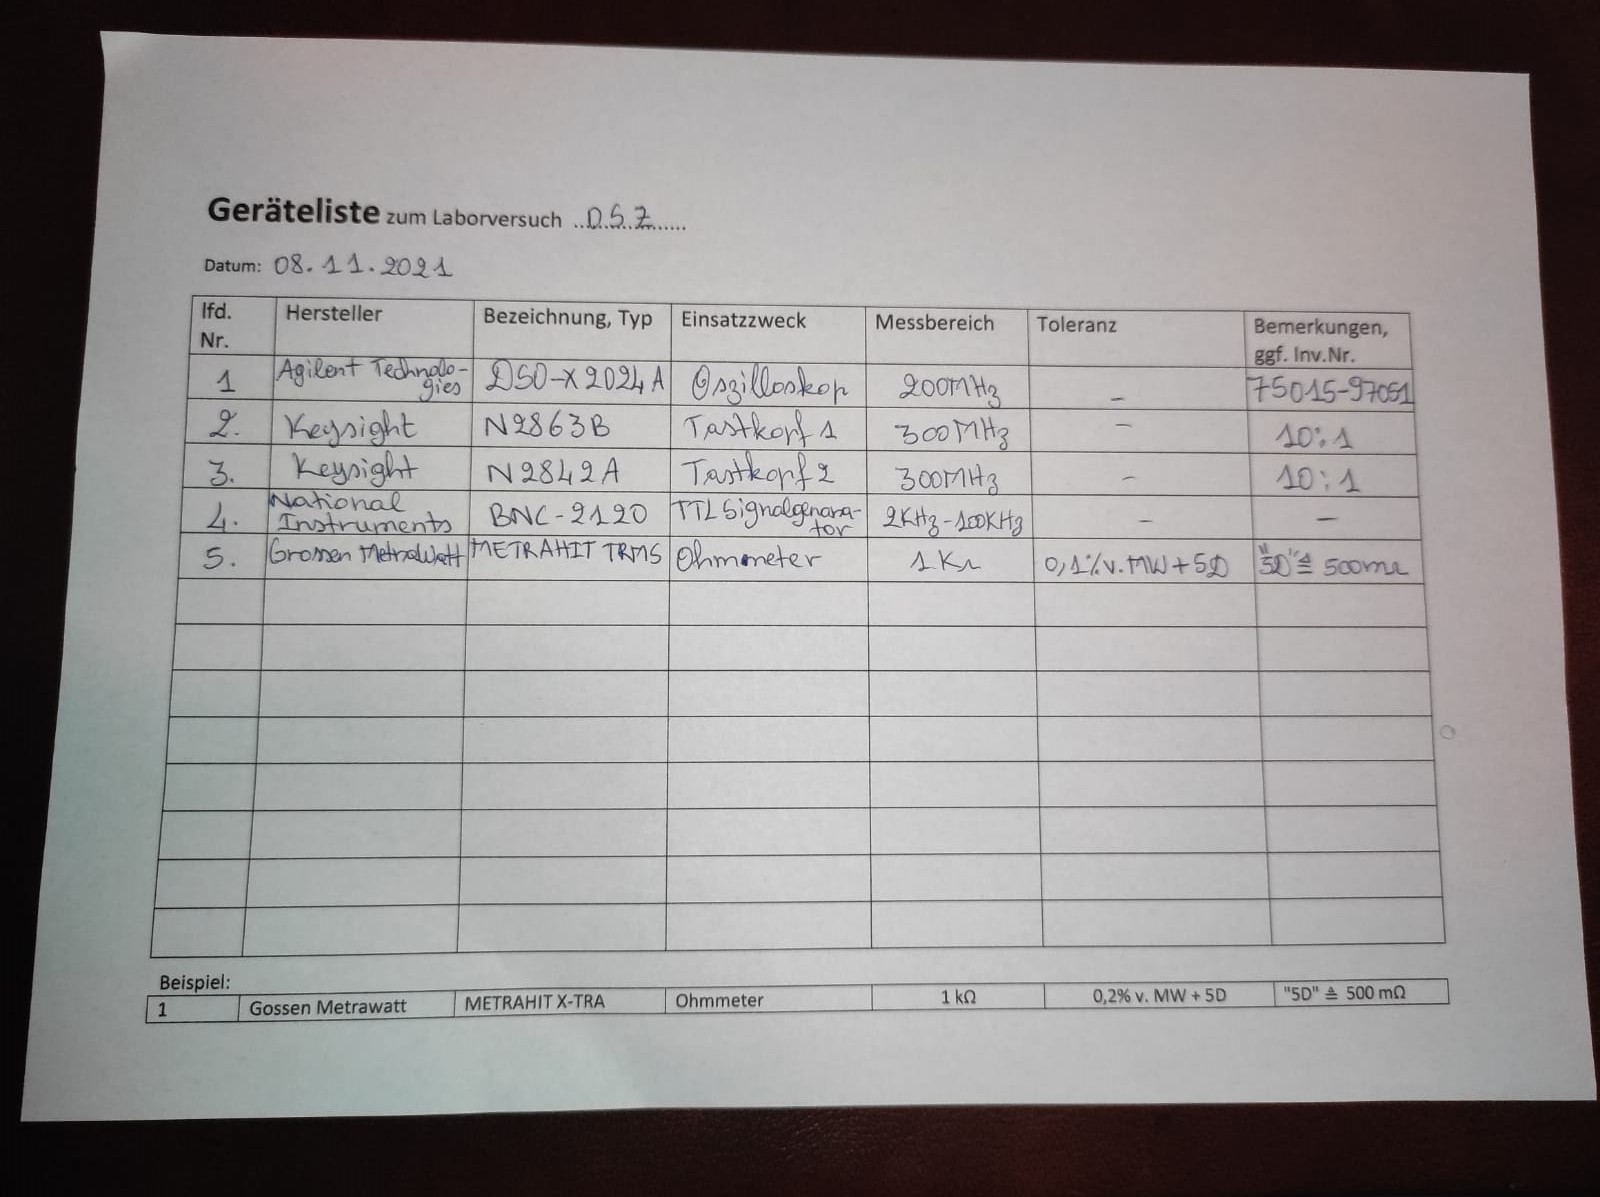 Geräteliste zum Laborversuch ..D.S.Z......
Datum: 08.11.2021
lfd. Nr. Hersteller Bezeichnung, Typ Einsatzzweck Messbereich Toleranz Bemerkungen, ggf. Inv.Nr.
1 Agilent Technolo-gies DSO-X 2024A Oszilloskop 200MHz – 75015-97051
2. Keysight N2863B Tastkopf 1 300MHz – 10:1
3. Keysight N2842A Tastkopf 2 300MHz – 10:1
4. National Instruments BNC-2120 TTL Signalgenara-tor 2KHz-100KHz – –
5. Grossen MetraWatt METRAHIT TRMS Ohmmeter 1KΩ 0,1% v. MW + 5D "5D" ≙ 500mΩ
Beispiel:
1 Gossen Metrawatt METRAHIT X-TRA Ohmmeter 1 kΩ 0,2% v. MW + 5D "5D" ≙ 500 mΩ